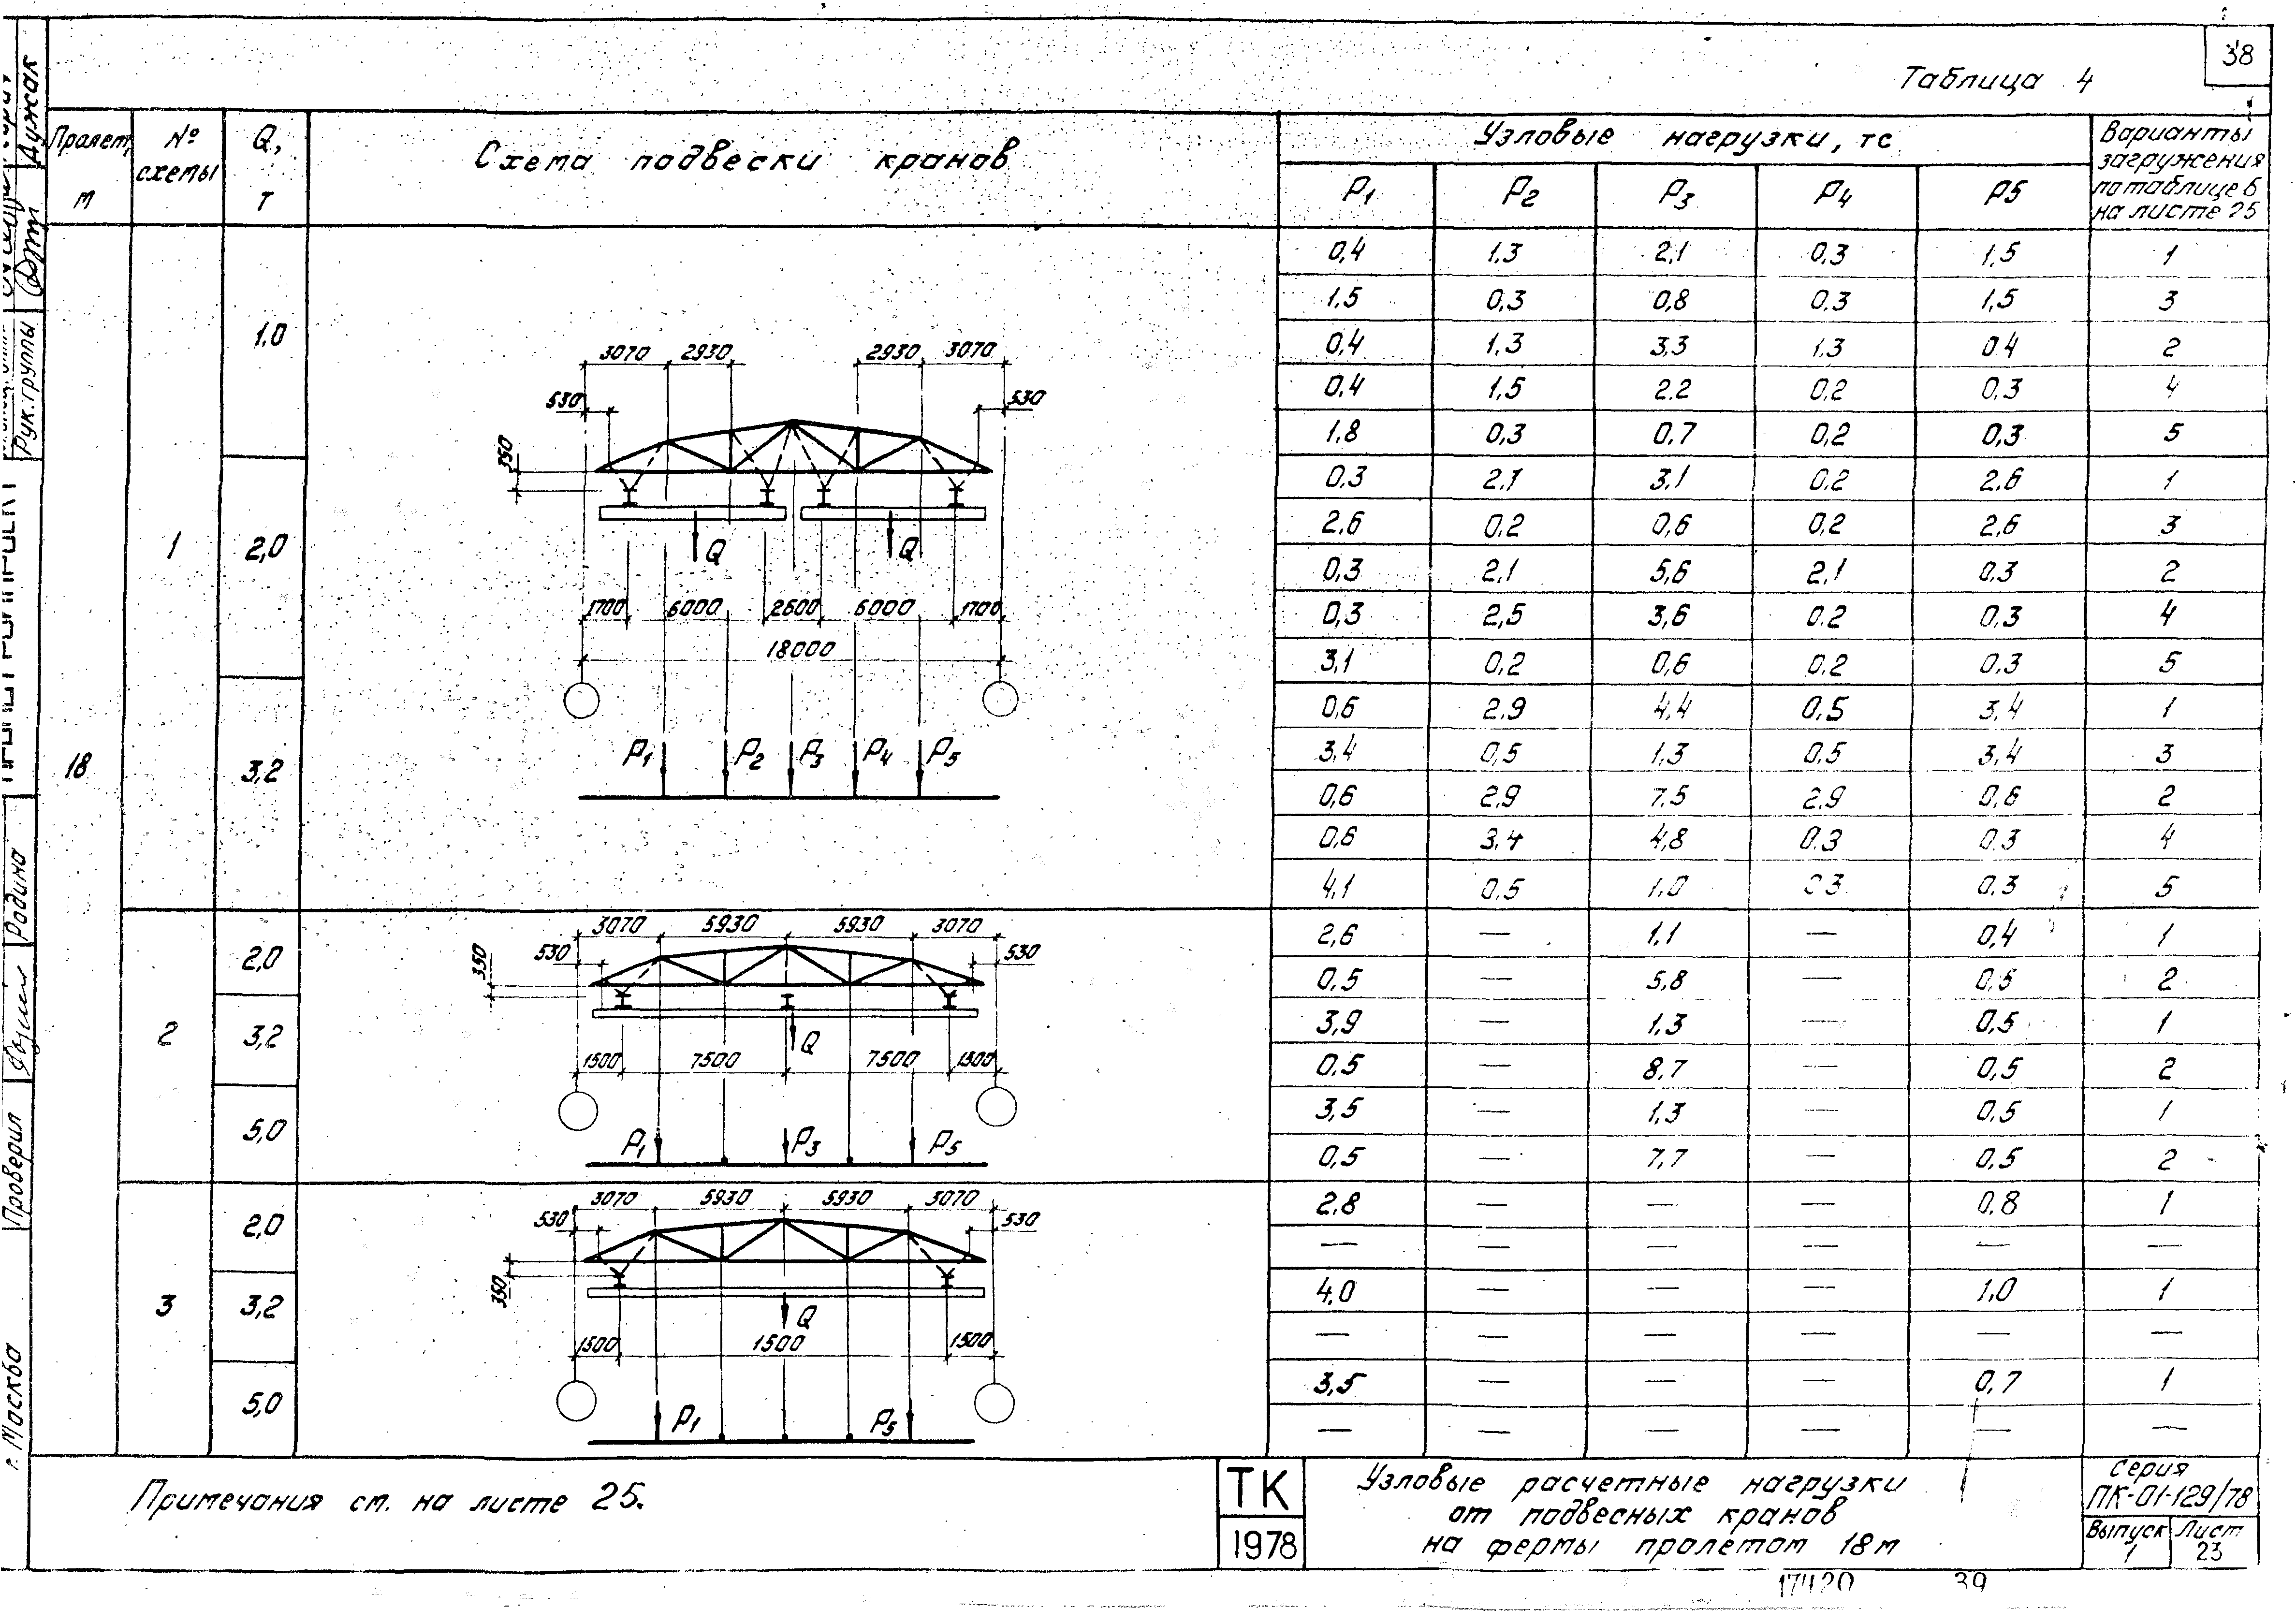 38
Таблица 4
Пролет, м
№ схемы
Q, т
Схема подвески кранов
Узловые нагрузки, тс
Варианты загружения по таблице 6 на листе 25
P1 P2 P3 P4 P5
0,4 1,3 2,1 0,3 1,5 1
1,5 0,3 0,8 0,3 1,5 3
0,4 1,3 3,3 1,3 0,4 2
0,4 1,5 2,2 0,2 0,3 4
1,8 0,3 0,7 0,2 0,3 5
0,3 2,1 3,1 0,2 2,6 1
2,6 0,2 0,6 0,2 2,6 3
0,3 2,1 5,6 2,1 0,3 2
0,3 2,5 3,6 0,2 0,3 4
3,1 0,2 0,6 0,2 0,3 5
0,6 2,9 4,4 0,5 3,4 1
3,4 0,5 1,3 0,5 3,4 3
0,6 2,9 7,5 2,9 0,6 2
0,6 3,4 4,8 0,3 0,3 4
4,1 0,5 1,0 0,3 0,3 5
2,6 — 1,1 — 0,4 1
0,5 — 5,8 — 0,5 2
3,9 — 1,3 — 0,5 1
0,5 — 8,7 — 0,5 2
3,5 — 1,3 — 0,5 1
0,5 — 7,7 — 0,5 2
2,8 — — — 0,8 1
— — — — — —
4,0 — — — 1,0 1
— — — — — —
3,5 — — — 0,7 1
— — — — — —
18
1
1,0
2,0
3,2
3070 2930 2930 3070
530 530
350
Q Q
1700 6000 2600 6000 1700
18000
P1 P2 P3 P4 P5
2
2,0
3,2
5,0
3070 5930 5930 3070
530 530
350
Q
1500 7500 7500 1500
P1 P3 P5
3
2,0
3,2
5,0
3070 5930 5930 3070
530 530
350
Q
1500 1500 1500
P1 P5
Примечания см. на листе 25.
ТК
1978
Узловые расчетные нагрузки
от подвесных кранов
на фермы пролетом 18м
Серия
ПК-01-129/78
Выпуск 1
Лист 23
17420 39
Дужак
Рук. группы
Родина
Проверил
г. Москва